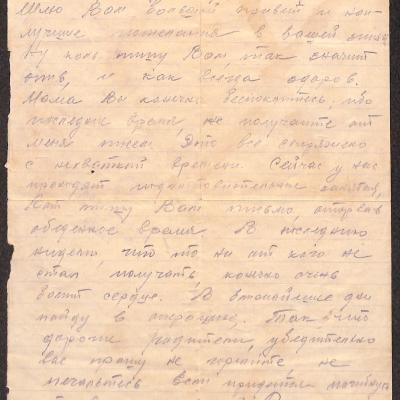 Шлю Вам большой привет и наи-
лучшие пожелания в вашей жизни
Ну коль пишу Вам, так значит
жив, и как всегда здоров.
Мама Вы конечно беспокоитесь, ибо
последнее время, не получаите от
меня писем. Это все сопряжено
с нехваткой времени. Сейчас у нас
проходят подготовительные занятия,
Вот пишу Вам письмо, оторвав
обеденное время. В последнюю
неделю, что то ни от кого не
стал получать, конечно очень
болит сердце. В ближайшие дни
пойду в операцию. Так что
дорогие родители, убедительно
вас прошу не горюйте, не
печальтесь если придется